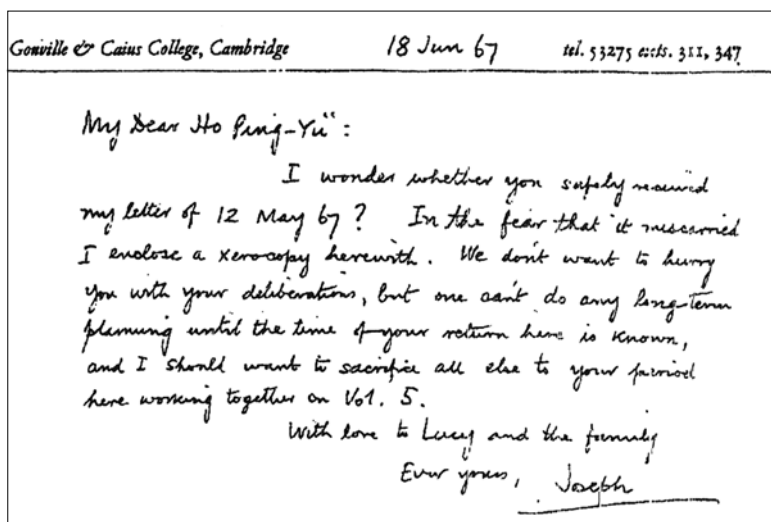 Gonville & Caius College, Cambridge 18 Jun 67 tel. 53275 exts. 311, 347
My Dear Ho Ping-Yü:
I wonder whether you safely received
my letter of 12 May 67? In the fear that it miscarried
I enclose a xerocopy herewith. We don't want to hurry
you with your deliberations, but one can't do any long-term
planning until the time of your return here is known,
and I should want to sacrifice all else to your period
here working together on Vol. 5.
With love to Lucy and the family
Ever yours, Joseph